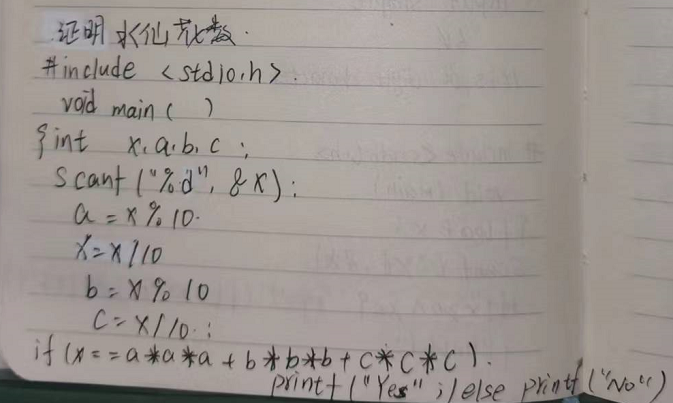 证明水仙花数.
#include <stdio.h>.
void main( )
{int x.a.b.c ;
scanf("%d", &x);
a=x%10.
x=x/10
b=x%10
c=x/10.;
if(x==a*a*a+b*b*b+c*c*c).
printf("Yes";)else printf("No")